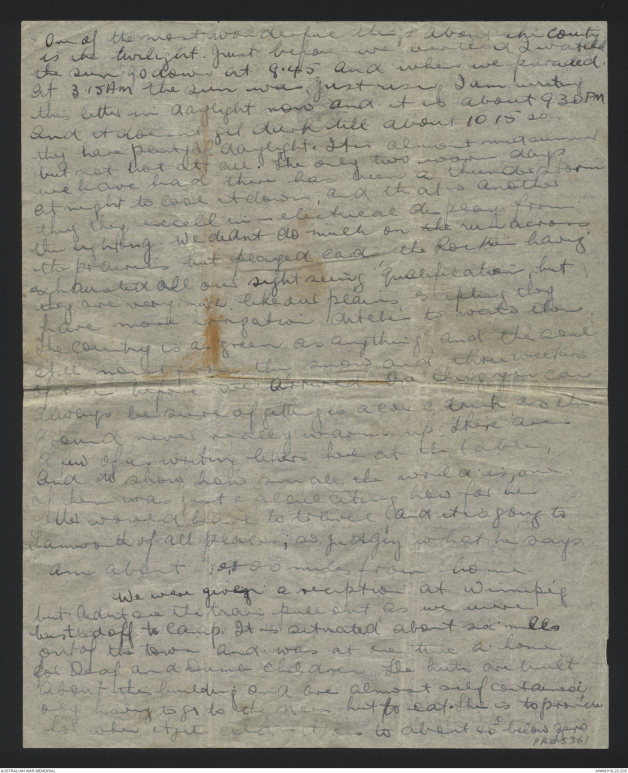 One of the most wonderful things about this country
is the twilight. Just before we arrived I watched
the sun go down at 9.45 and when we paraded
at 3.15 AM the sun was just rising I am writing
this letter in daylight now and it is about 9 30 PM
and it does not get dark till about 10 15 so
they have plenty of daylight. It is almost midsummer
but not hot at all. The only two warm days
we have had there has been a thunderstorm
at night to cool it down, and that is another
thing they excell in is electrical display from
the lighting. We didnt do much on the run across
the praries but played cards, the Rockies having
exhausted all our sight seeing qualification, but
they are very much like our plains excepting they
have more irrigation ditches to water them.
The country is as green as anything and the soil
still moist from the snow and three weeks
of rain before we arrived. One thing you can
always be sure of getting is a cold drink as the
ground never really warms up. There are
a few of us writing letters here at the table,
and to show how small the world is, one
of them was just calculating how far his
letter would have to travel, and it is going to
Tamworth of all places; so judging what he says
am about 10,000 miles from home
We were given a reception at Winnipeg
but didnt see the train pull out as we were
hustled off to Camp. It is situated about six miles
out of the town and was at one time a home
for Deaf and Dumb children. The huts are built
about this building and are almost self contained
only having to go to the main hut to eat. This is to provide
when it get cold to about 40° below zero
PR05361
AUSTRALIAN WAR MEMORIAL